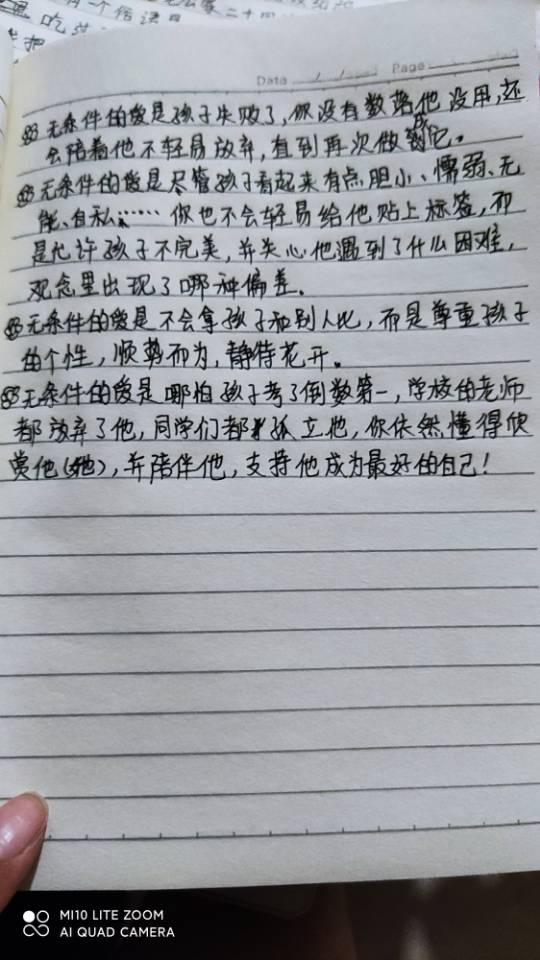 有一个俗语
吃
把
Date Page
无条件的爱是孩子失败了,你没有数落他没用,还
会陪着他不轻易放弃,直到再次做成它。
无条件的爱是尽管孩子看起来有点胆小、懦弱、无
能、自私……你也不会轻易给他贴上标签,而
是允许孩子不完美,并关心他遇到了什么困难,
观念里出现了哪种偏差。
无条件的爱是不会拿孩子和别人比,而是尊重孩子
的个性,顺势而为,静待花开。
无条件的爱是哪怕孩子考了倒数第一,学校的老师
都放弃了他,同学们都孤立他,你依然懂得欣
赏他(她),并陪伴他,支持他成为最好的自己!
MI10 LITE ZOOM
AI QUAD CAMERA